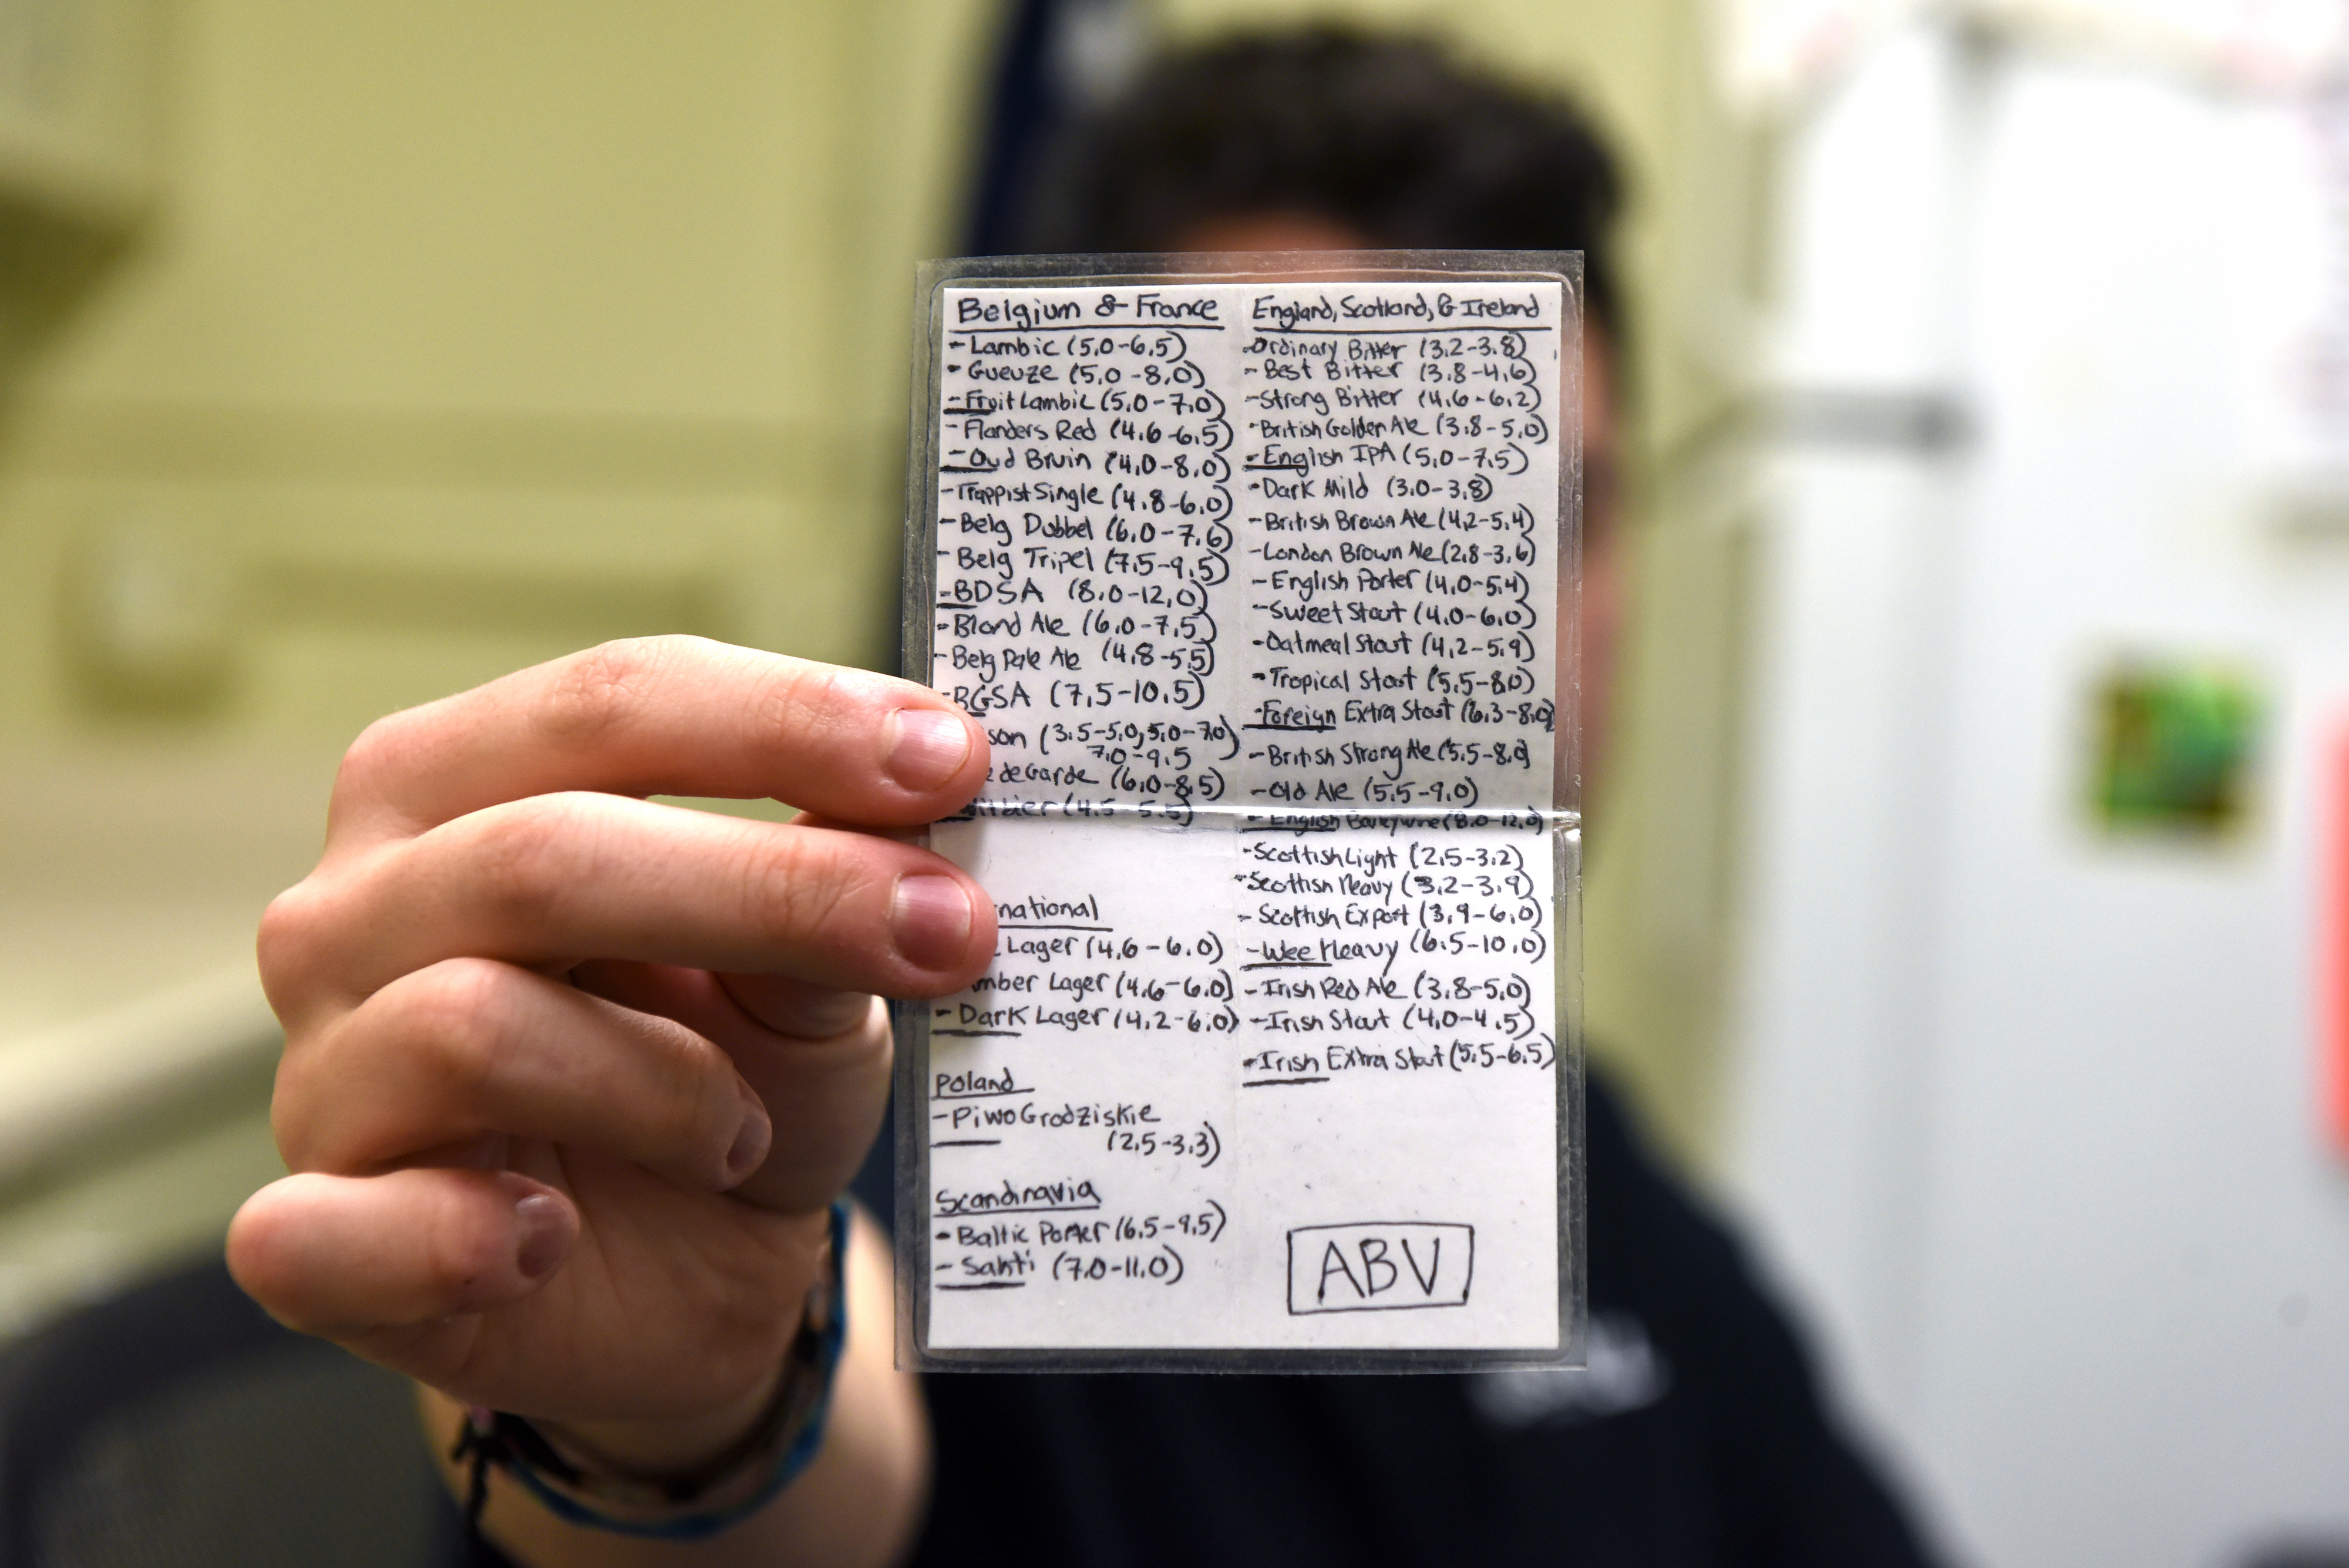 Belgium & France
- Lambic (5.0-6.5)
- Gueuze (5.0-8.0)
- Fruit Lambic (5.0-7.0)
- Flanders Red (4.6-6.5)
- Oud Bruin (4.0-8.0)
- Trappist Single (4.8-6.0)
- Belg Dubbel (6.0-7.6)
- Belg Tripel (7.5-9.5)
- BDSA (8.0-12.0)
- Blond Ale (6.0-7.5)
- Belg Pale Ale (4.8-5.5)
- BGSA (7.5-10.5)
son (3.5-5.0, 5.0-7.0)
7.0-9.5
e de Garde (6.0-8.5)
itbier (4.5-5.5)
rnational
Lager (4.6-6.0)
mber Lager (4.6-6.0)
- Dark Lager (4.2-6.0)
Poland
- Piwo Grodziskie
(2.5-3.3)
Scandinavia
- Baltic Porter (6.5-9.5)
- Sahti (7.0-11.0)
England, Scotland, & Ireland
- Ordinary Bitter (3.2-3.8)
- Best Bitter (3.8-4.6)
- Strong Bitter (4.6-6.2)
- British Golden Ale (3.8-5.0)
- English IPA (5.0-7.5)
- Dark Mild (3.0-3.8)
- British Brown Ale (4.2-5.4)
- London Brown Ale (2.8-3.6)
- English Porter (4.0-5.4)
- Sweet Stout (4.0-6.0)
- Oatmeal Stout (4.2-5.9)
- Tropical Stout (5.5-8.0)
- Foreign Extra Stout (6.3-8.0)
- British Strong Ale (5.5-8.0)
- Old Ale (5.5-9.0)
- English Barleywine (8.0-12.0)
- Scottish Light (2.5-3.2)
- Scottish Heavy (3.2-3.9)
- Scottish Export (3.9-6.0)
- Wee Heavy (6.5-10.0)
- Irish Red Ale (3.8-5.0)
- Irish Stout (4.0-4.5)
- Irish Extra Stout (5.5-6.5)
ABV